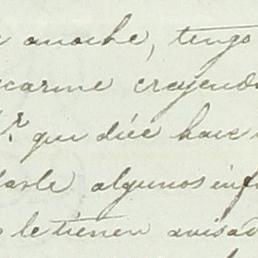 anoche, tengo
carme creyendo
Sr. qui dice hace
darle algunos inf
le tienen avisad